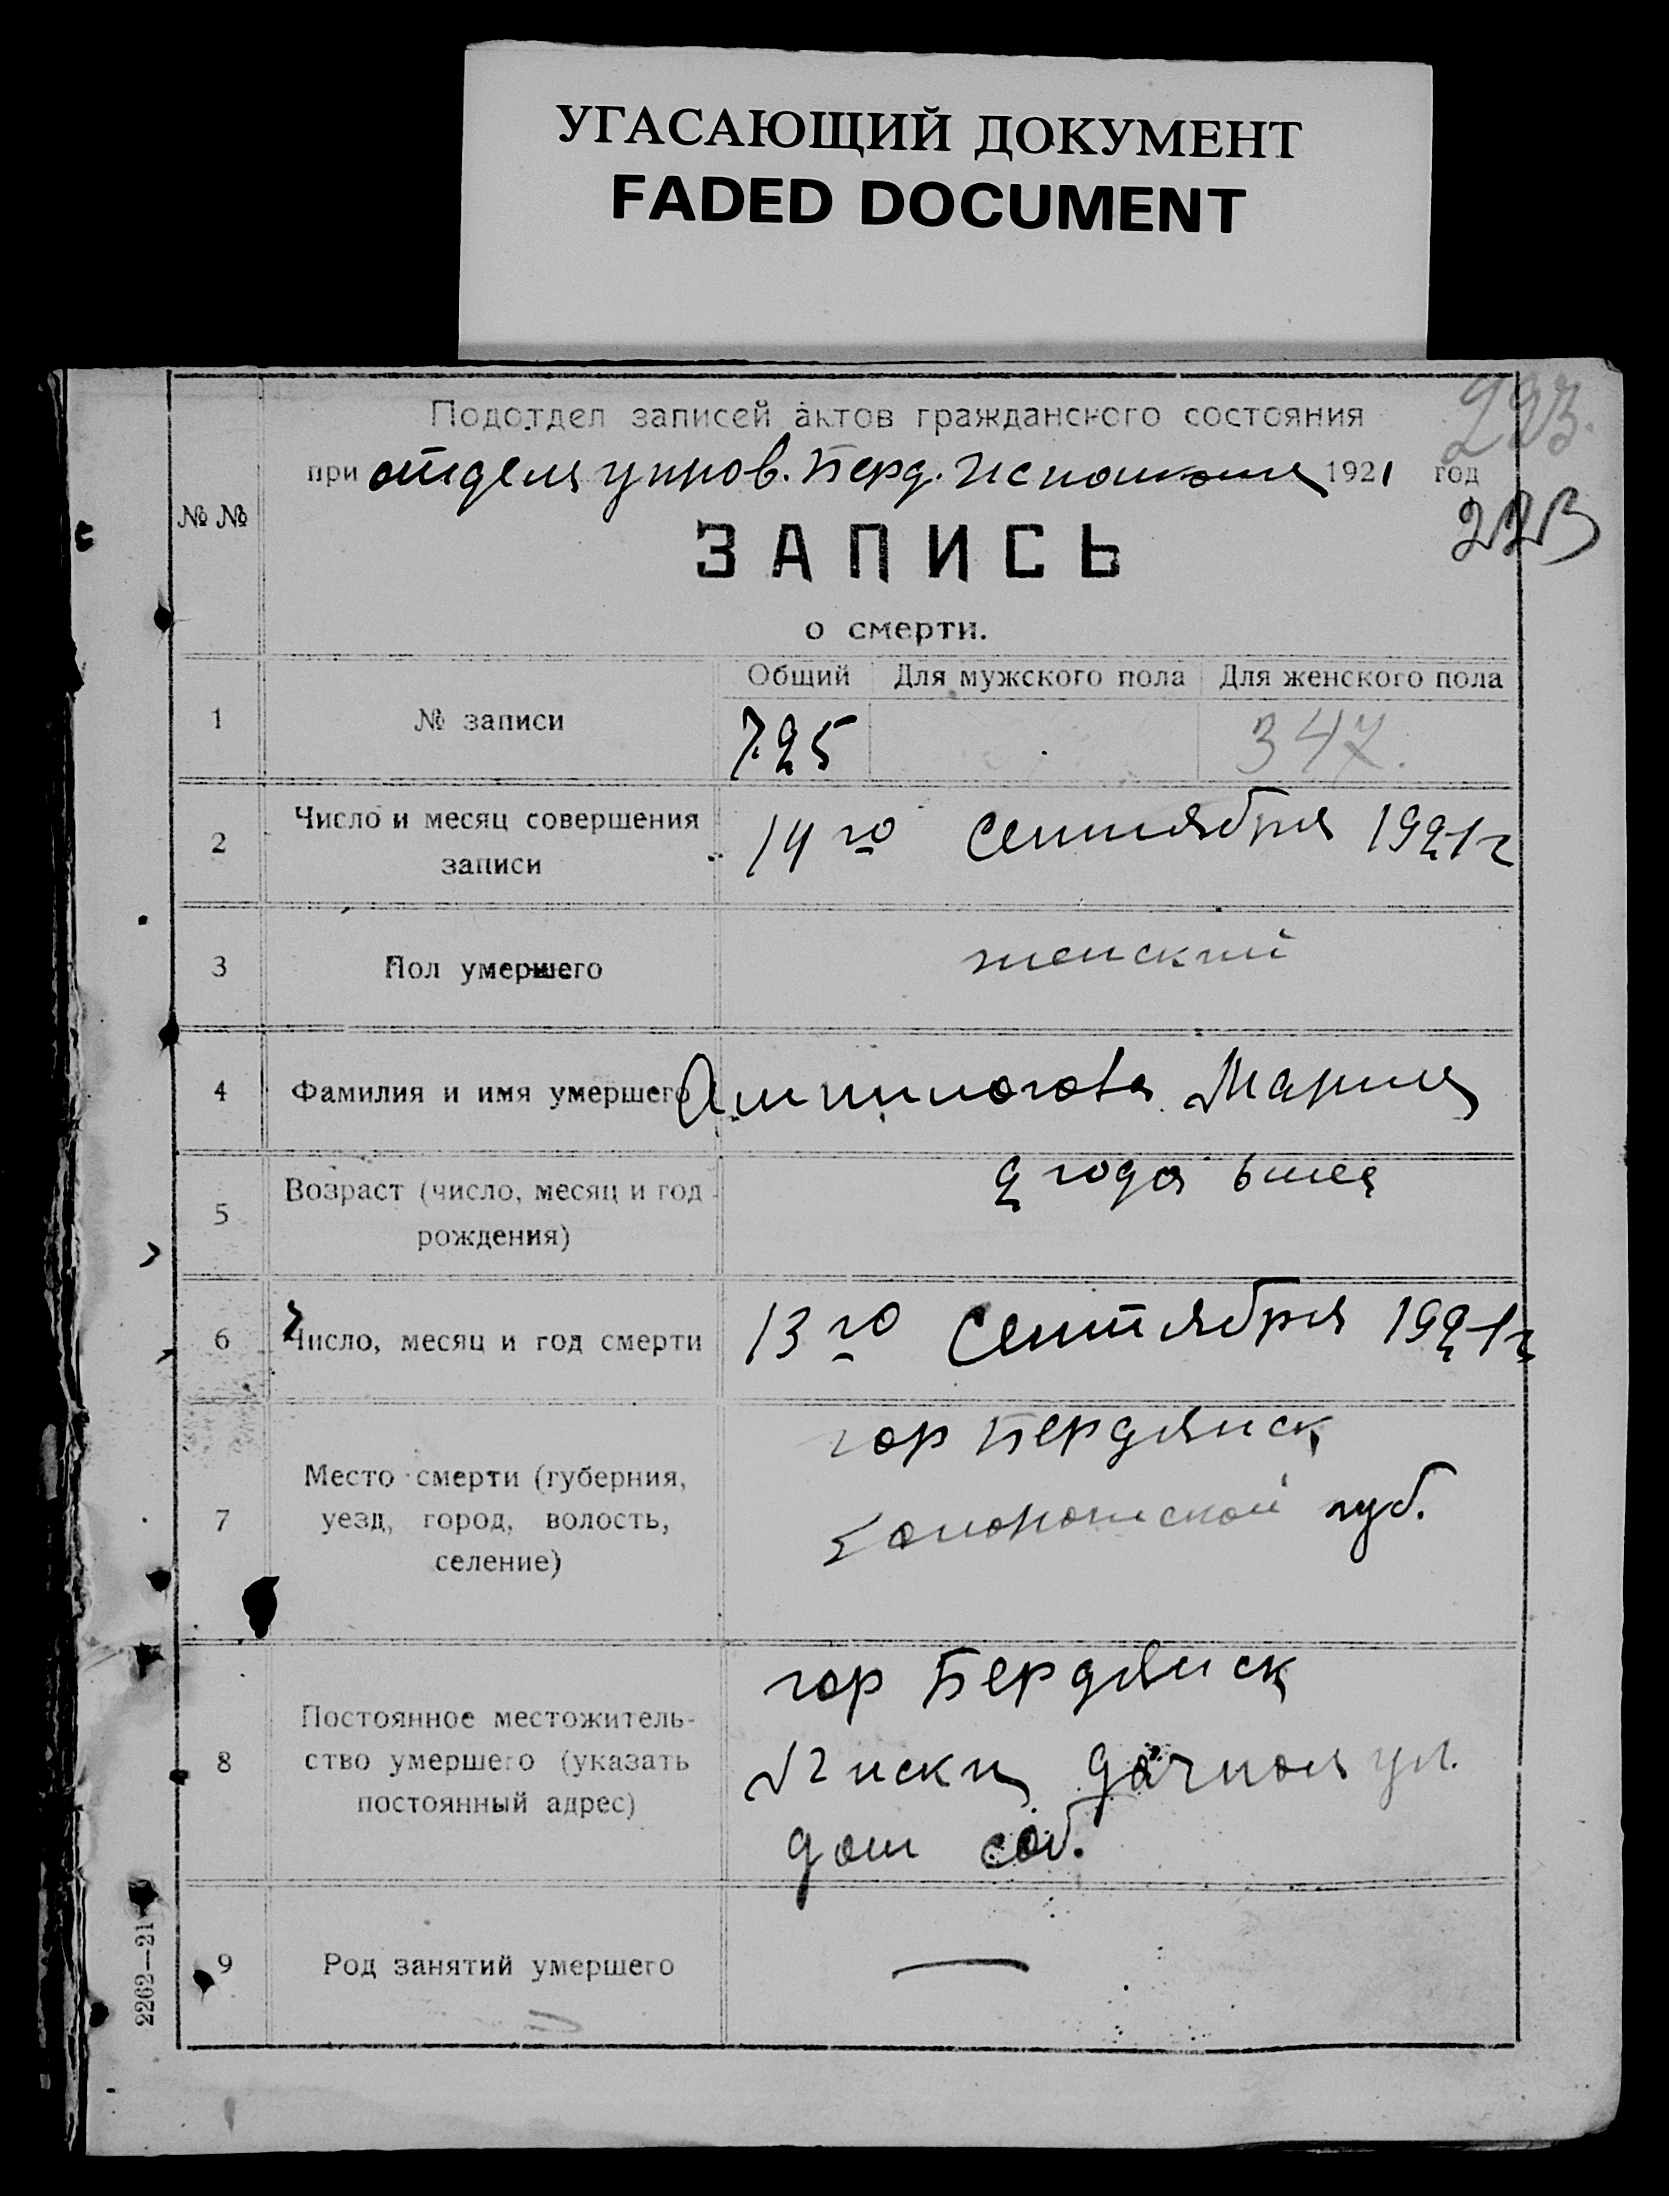 УГАСАЮЩИЙ ДОКУМЕНТ
FADED DOCUMENT
Подотдел записей актов гражданского состояния
при отделе управ. Берд. Исполкома 1921 год
223
№ №
ЗАПИСЬ
о смерти.
Общий Для мужского пола Для женского пола
1 № записи 725 347.
2 Число и месяц совершения записи 14го Сентября 1921 г
3 Пол умершего женский
4 Фамилия и имя умершего Мария
5 Возраст (число, месяц и год рождения) 2 года 6 мец
6 Число, месяц и год смерти 13го Сентября 1921 г
7 Место смерти (губерния, уезд, город, волость, селение) гор Бердянск
губ.
8 Постоянное местожительство умершего (указать постоянный адрес) гор Бердянск
дачная ул.
дом соб.
9 Род занятий умершего —
2262—21